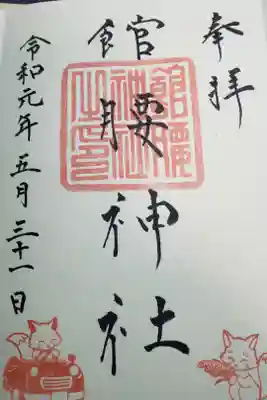 奉拝
館腰神社
令和元年五月三十一日
館腰神社之印